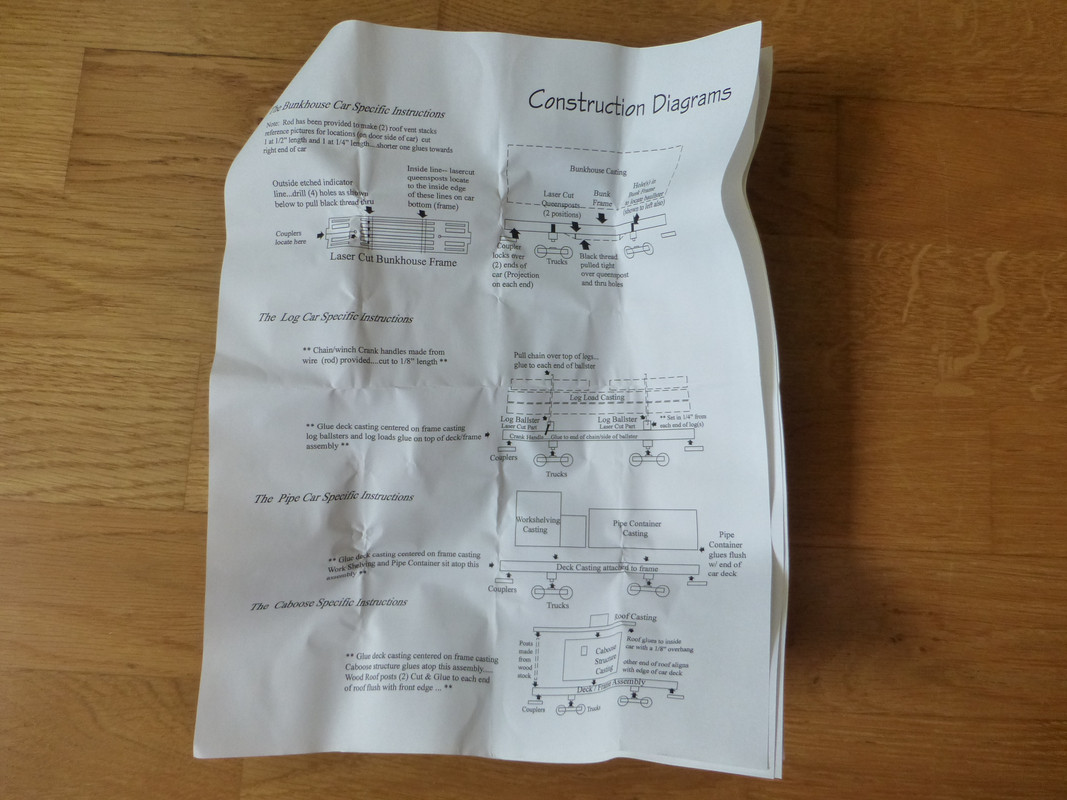 Construction Diagrams
The Bunkhouse Car Specific Instructions
Note: Rod has been provided to make (2) roof vent stacks
reference pictures for locations (on door side of car) cut
1 at 1/2" length and 1 at 1/4" length....shorter one glues towards
right end of car
Outside etched indicator
line...drill (4) holes as shown
below to pull black thread thru
Inside line-- lasercut
queensposts locate
to the inside edge
of these lines on car
bottom (frame)
Couplers
locate here
Laser Cut Bunkhouse Frame
Bunkhouse Casting
Laser Cut
Queensposts
(2 positions)
Bunk
Frame
Hole(s) in
Bunk Frame
to locate
(shown to left also)
Coupler
locks over
(2) ends of
car (Projection
on each end)
Trucks
Black thread
pulled tight
over queenspost
and thru holes
The Log Car Specific Instructions
** Chain/winch Crank handles made from
wire (rod) provided....cut to 1/8" length **
Pull chain over top of logs...
glue to each end of balster
Log Load Casting
Log Balster
Laser Cut Part
Log Balster
Laser Cut Part
** Set in 1/4" from
each end of log(s)
** Glue deck casting centered on frame casting
log balsters and log loads glue on top of deck/frame
assembly **
Crank Handle... Glue to end of chain/side of balster
Couplers
Trucks
The Pipe Car Specific Instructions
Workshelving
Casting
Pipe Container
Casting
Pipe
Container
glues flush
w/ end of
car deck
** Glue deck casting centered on frame casting
Work Shelving and Pipe Container sit atop this
assembly **
Deck Casting attached to frame
Couplers
Trucks
The Caboose Specific Instructions
Roof Casting
Posts
made
from
wood
stock
Caboose
Structure
Casting
Roof glues to inside
car with a 1/8" overhang
other end of roof aligns
with edge of car deck
** Glue deck casting centered on frame casting
Caboose structure glues atop this assembly....
Wood Roof posts (2) Cut & Glue to each end
of roof flush with front edge ... **
Deck / Frame Assembly
Couplers
Trucks